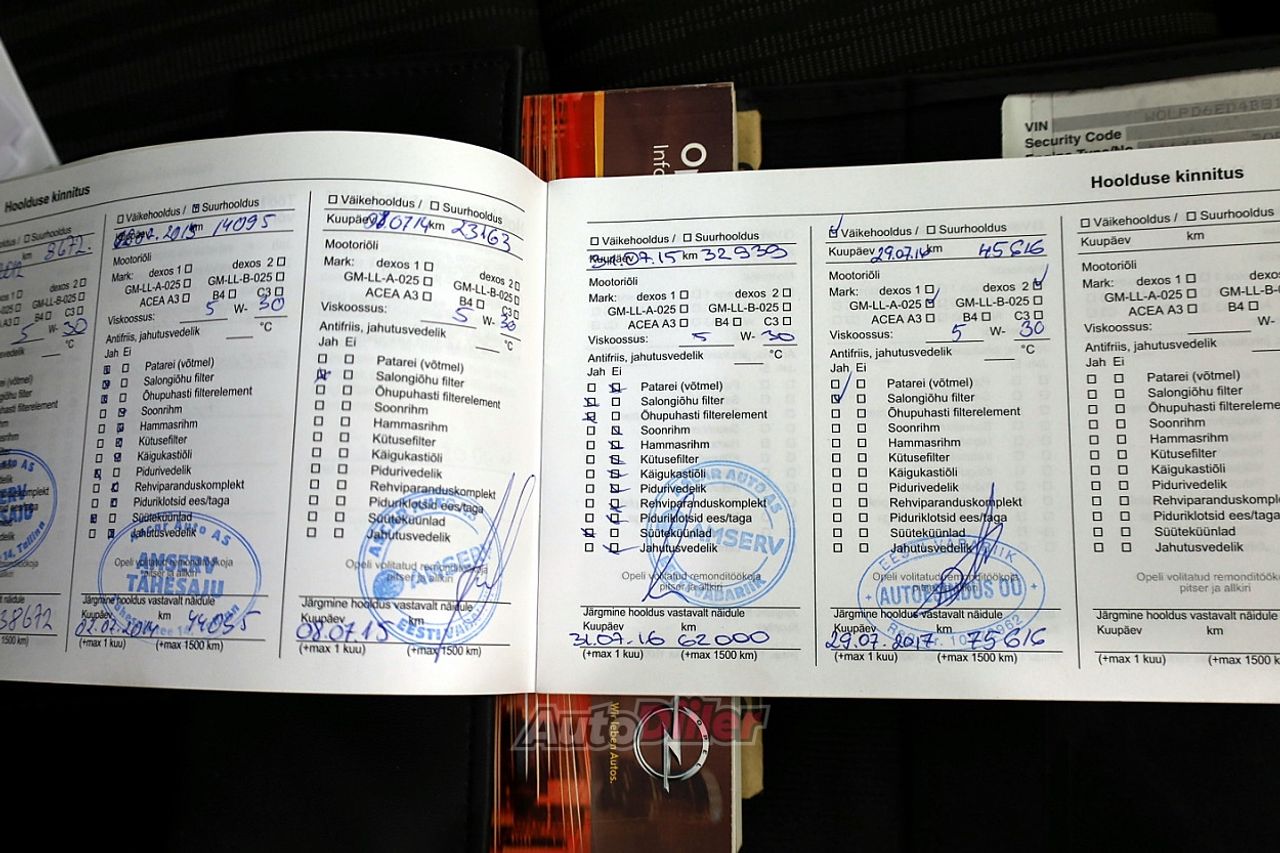 VIN WOLPD6ED4BB
Security Code
Hoolduse kinnitus
oldus / ☐ Suurhooldus
km 8672.
5 W- 30
☐ Väikehooldus / ☒ Suurhooldus
2013 km 14095
Mootoriõli
Mark: dexos 1 ☐ dexos 2 ☐
GM-LL-A-025 ☐ GM-LL-B-025 ☐
ACEA A3 ☐ B4 ☐ C3 ☐
Viskoossus: 5 W- 30
Antifriis, jahutusvedelik °C
Jah Ei
Patarei (võtmel)
Salongiõhu filter
Õhupuhasti filterelement
Soonrihm
Hammasrihm
Kütusefilter
Käigukastiõli
Pidurivedelik
Rehviparanduskomplekt
Piduriklotsid ees/taga
Süüteküünlad
Jahutusvedelik
AMSERV
TÄHESAJU
Järgmine hooldus vastavalt näidule
Kuupäev km
02.07.2014 44095
(+max 1 kuu) (+max 1500 km)
38672
☐ Väikehooldus / ☐ Suurhooldus
Kuupäev 08.07.14 km 23163
Mootoriõli
Mark: dexos 1 ☐ dexos 2 ☐
GM-LL-A-025 ☐ GM-LL-B-025 ☐
ACEA A3 ☐ B4 ☐ C3 ☐
Viskoossus: 5 W- 30
Antifriis, jahutusvedelik °C
Jah Ei
Patarei (võtmel)
Salongiõhu filter
Õhupuhasti filterelement
Soonrihm
Hammasrihm
Kütusefilter
Käigukastiõli
Pidurivedelik
Rehviparanduskomplekt
Piduriklotsid ees/taga
Süüteküünlad
Jahutusvedelik
Opeli volitatud remonditöökoja
pitser ja allkiri
AMSERV
Järgmine hooldus vastavalt näidule
Kuupäev km
08.07.15
(+max 1 kuu) (+max 1500 km)
Hoolduse kinnitus
☐ Väikehooldus / ☐ Suurhooldus
Kuupäev 31.07.15 km 32939
Mootoriõli
Mark: dexos 1 ☐ dexos 2 ☐
GM-LL-A-025 ☐ GM-LL-B-025 ☐
ACEA A3 ☐ B4 ☐ C3 ☐
Viskoossus: 5 W- 30
Antifriis, jahutusvedelik °C
Jah Ei
Patarei (võtmel)
Salongiõhu filter
Õhupuhasti filterelement
Soonrihm
Hammasrihm
Kütusefilter
Käigukastiõli
Pidurivedelik
Rehviparanduskomplekt
Piduriklotsid ees/taga
Süüteküünlad
Jahutusvedelik
AMSERV
Opeli volitatud remonditöökoja
pitser ja allkiri
Järgmine hooldus vastavalt näidule
Kuupäev km
31.07.16 62000
(+max 1 kuu) (+max 1500 km)
☑ Väikehooldus / ☐ Suurhooldus
Kuupäev 29.07.16 km 45616
Mootoriõli
Mark: dexos 1 ☐ dexos 2 ☑
GM-LL-A-025 ☑ GM-LL-B-025 ☐
ACEA A3 ☐ B4 ☐ C3 ☐
Viskoossus: 5 W- 30
Antifriis, jahutusvedelik °C
Jah Ei
Patarei (võtmel)
Salongiõhu filter
Õhupuhasti filterelement
Soonrihm
Hammasrihm
Kütusefilter
Käigukastiõli
Pidurivedelik
Rehviparanduskomplekt
Piduriklotsid ees/taga
Süüteküünlad
Jahutusvedelik
Opeli volitatud remonditöökoja
pitser ja allkiri
Järgmine hooldus vastavalt näidule
Kuupäev km
29.07.2017 75616
(+max 1 kuu) (+max 1500 km)
☐ Väikehooldus / ☐ Suurhooldus
Kuupäev km
Mootoriõli
Mark: dexos 1 ☐
GM-LL-A-025 ☐ GM-LL-B
ACEA A3 ☐ B4 ☐
Viskoossus: W-
Antifriis, jahutusvedelik
Jah Ei
Patarei (võtmel)
Salongiõhu filter
Õhupuhasti filterelement
Soonrihm
Hammasrihm
Kütusefilter
Käigukastiõli
Pidurivedelik
Rehviparanduskomplekt
Piduriklotsid ees/taga
Süüteküünlad
Jahutusvedelik
Opeli volitatud remonditöökoja
pitser ja allkiri
Järgmine hooldus vastavalt näidule
Kuupäev km
(+max 1 kuu) (+max 1500
Wir leben Autos.
OPEL
AutoDiler